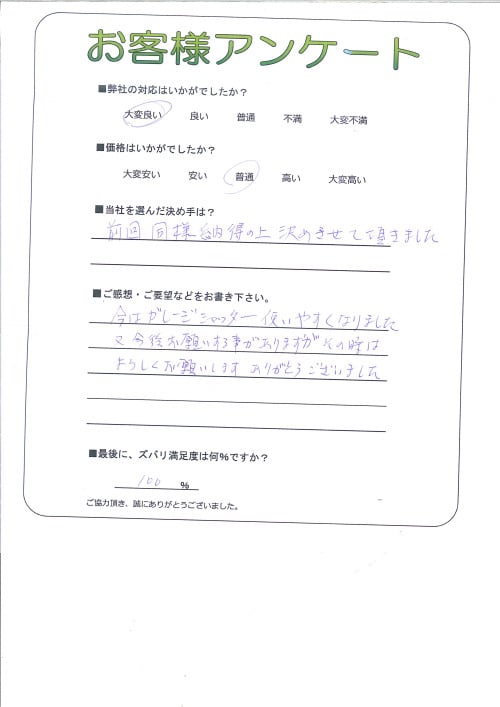 お客様アンケート
■弊社の対応はいかがでしたか？
大変良い 良い 普通 不満 大変不満
■価格はいかがでしたか？
大変安い 安い 普通 高い 大変高い
■当社を選んだ決め手は？
前回同様納得の上決めさせて頂きました
■ご感想・ご要望などをお書き下さい。
今はガレージシャッター使いやすくなりました
又今後お願いする事がありますがその時は
よろしくお願いします ありがとうございました
■最後に、ズバリ満足度は何％ですか？
100 %
ご協力頂き、誠にありがとうございました。